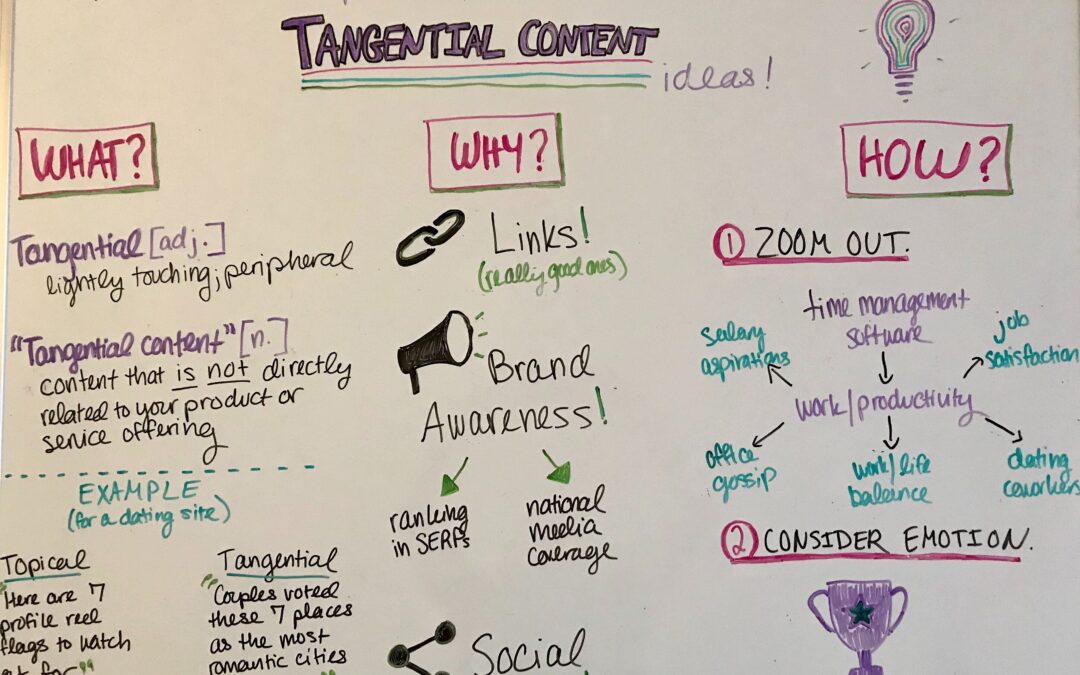 TANGENTIAL CONTENT
ideas!
WHAT?
Tangential [adj.]
lightly touching; peripheral
"Tangential content" [n.]
content that is not directly
related to your product or
service offering
EXAMPLE
(for a dating site)
Topical
"Here are 7
profile reel
flags to watch
out for"
Tangential
"Couples voted
these 7 places
as the most
romantic cities
WHY?
Links!
(really good ones)
Brand
Awareness!
ranking
in SERPs
national
media
coverage
Social
HOW?
1 ZOOM OUT.
time management
software
salary
aspirations
job
satisfaction
work/productivity
office
gossip
work/life
balance
dating
coworkers
2 CONSIDER EMOTION.